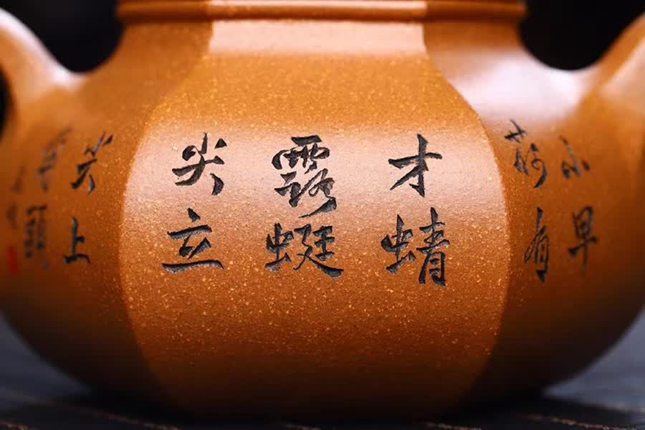 小荷才露尖尖
早有蜻蜓立上